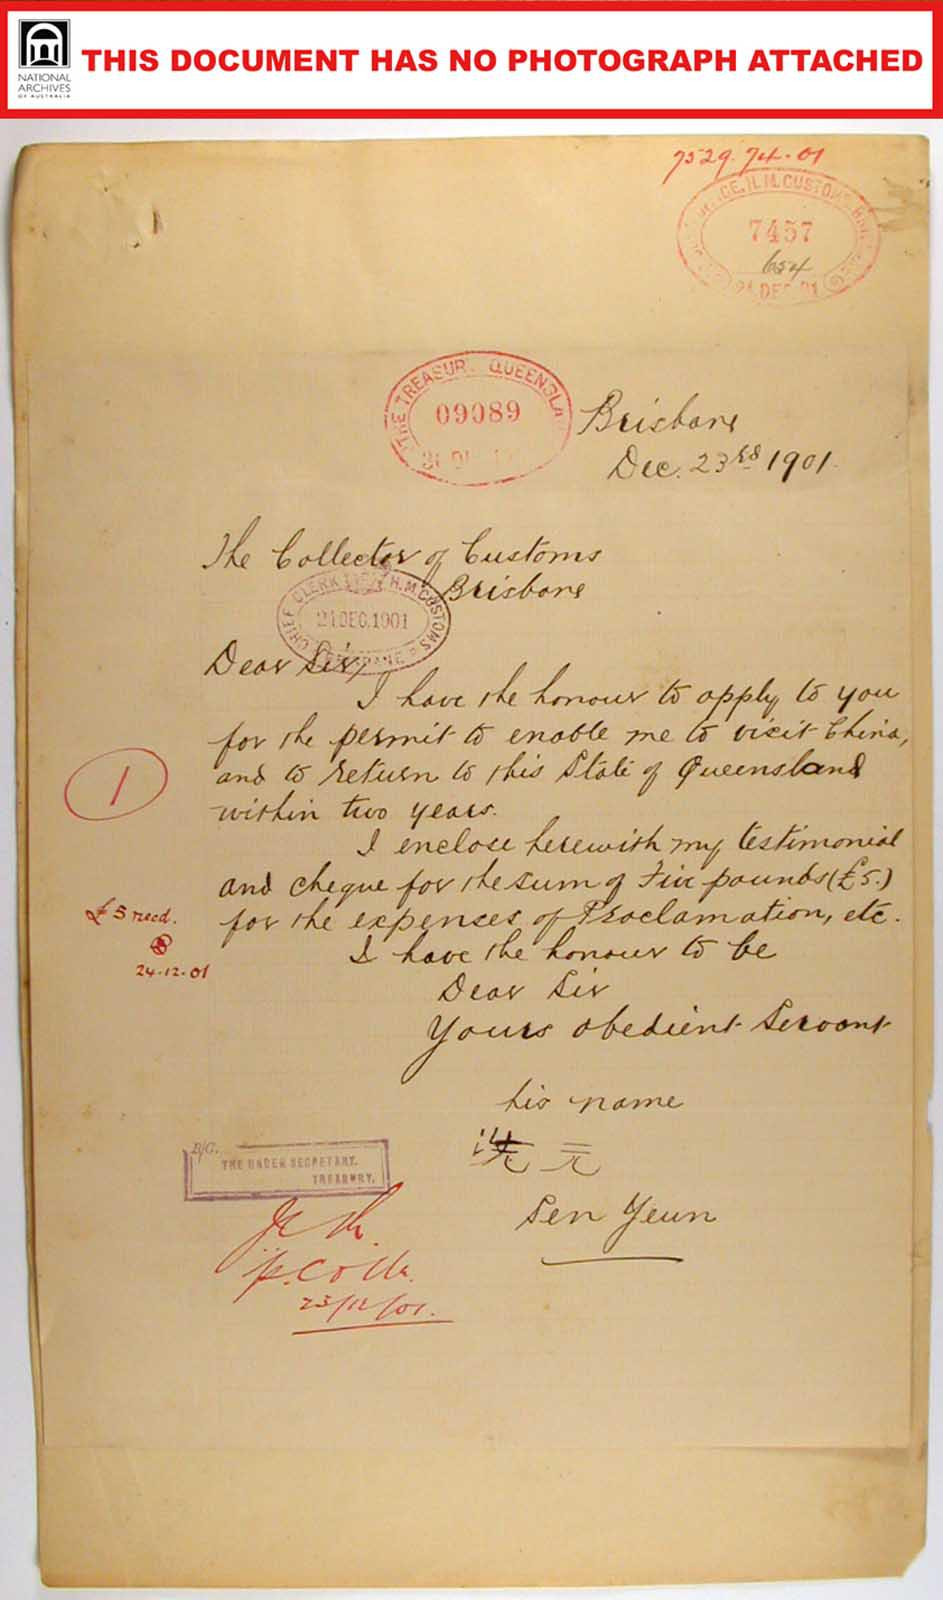 NATIONAL
ARCHIVES
OF AUSTRALIA
THIS DOCUMENT HAS NO PHOTOGRAPH ATTACHED
7529.74.01
H.M. CUSTOMS
7457
654
24 DEC 01
THE TREASURY QUEENSLAND
09089
Brisbane
Dec. 23rd 1901.
The Collector of Customs
Brisbane
CHIEF CLERK H.M. CUSTOMS
24 DEC. 1901
BRISBANE
Dear Sir,
I have the honour to apply to you
for the permit to enable me to visit China,
and to return to this State of Queensland
within two years.
1
I enclose herewith my testimonial
and cheque for the sum of Five pounds (£5.)
for the expenses of Proclamation, etc.
£5 recd.
24-12-01
I have the honour to be
Dear Sir
Yours obedient Servant
his name
冼元
Sen Yeun
B/C.
THE UNDER SECRETARY.
TREASURY.
23/12/01.